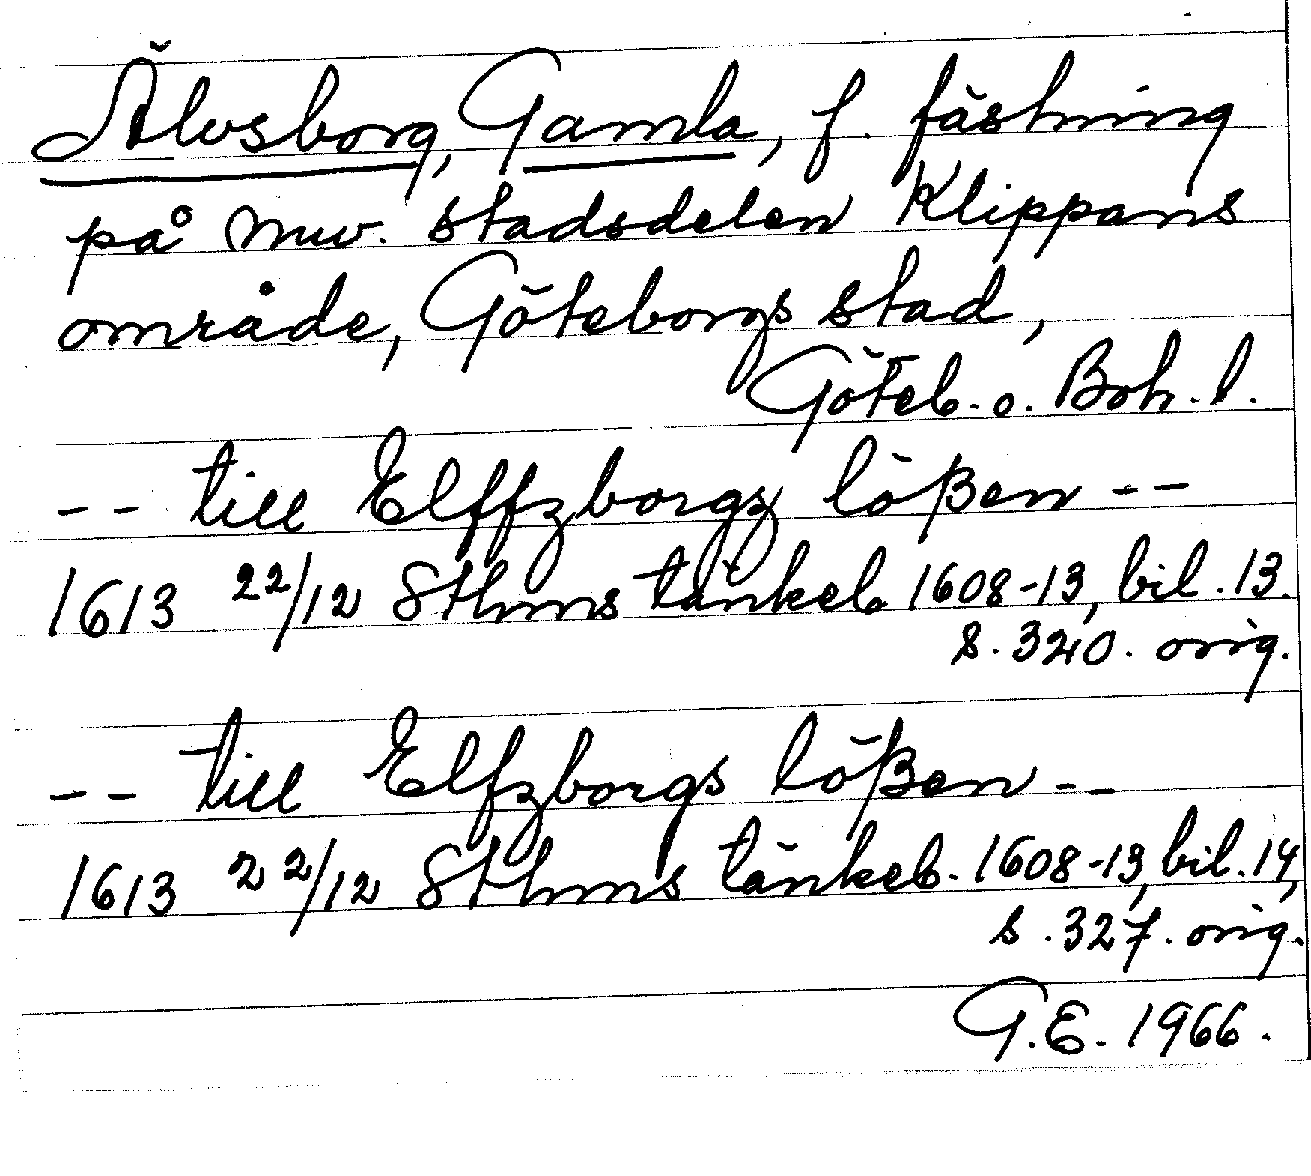 Älvsborg, Gamla, f. fästning
på nuv. stadsdelen Klippans
område, Göteborgs stad,
Göteb. o. Boh. l.
-- till Elffzborgz lößen --
1613 22/12 Sthms tänkeb. 1608-13, bil. 13.
s. 320. orig.
-- till Elfzborgs lößen --
1613 22/12 Sthms tänkeb. 1608-13, bil. 14,
s. 327. orig.
G.E. 1966.